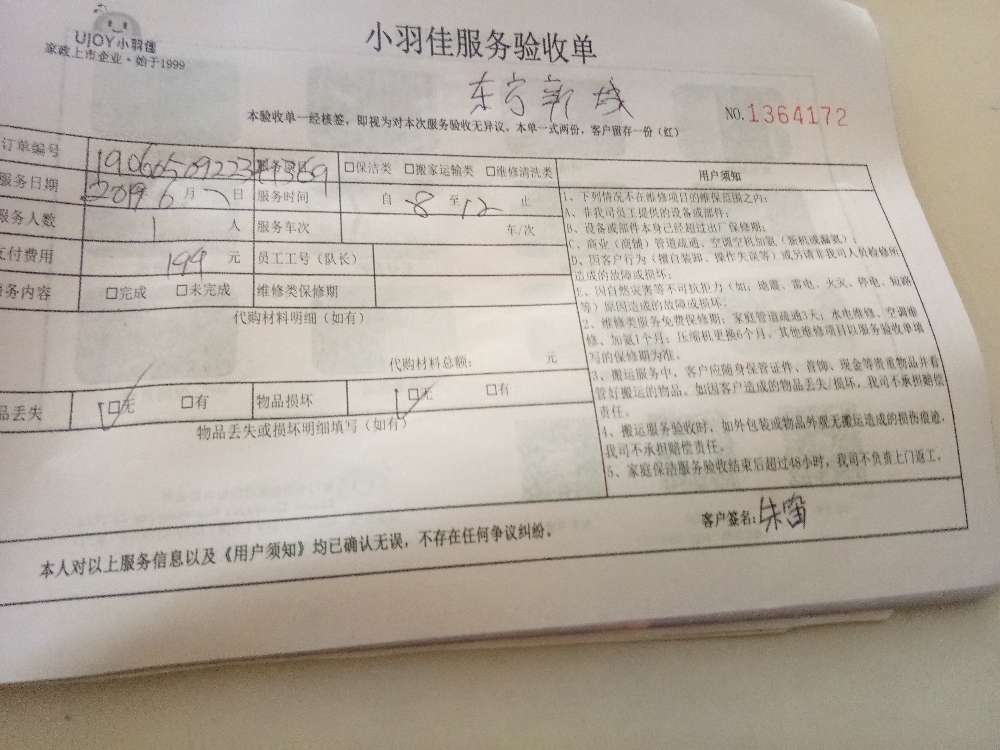 UJOY小羽佳
家政上市企业·始于1999
小羽佳服务验收单
NO.1364172
本验收单一经核签,即视为对本次服务验收无异议。本单一式两份,客户留存一份(红)
订单编号 服务项目 □保洁类 □搬家运输类 □维修清洗类
服务日期 2019 6 月 日 服务时间 自 8 至 12 止
服务人数 1 人 服务车次 车/次
支付费用 199 元 员工工号(队长)
服务内容 □完成 □未完成 维修类保修期
代购材料明细(如有)
代购材料总额: 元
品丢失 □无 □有 物品损坏 □无 □有
物品丢失或损坏明细填写(如有)
用户须知
1、下列情况不在维修项目的维保范围之内:
A、非我司员工提供的设备或部件;
B、设备或部件本身已经超过出厂保修期;
C、商业(商铺)管道疏通、空调空机加氨(新机或漏氨);
D、因客户行为(擅自装卸、操作失误等)或另请非我司人员检修所
造成的故障或损坏;
E、因自然灾害等不可抗拒力(如:地震、雷电、火灾、停电、短路
等)原因造成的故障或损坏。
2、维修类服务免费保修期:家庭管道疏通3天;水电维修、空调维
修、加氨1个月;压缩机更换6个月。其他维修项目以服务验收单填
写的保修期为准。
3、搬运服务中,客户应随身保管证件、首饰、现金等贵重物品并看
管好搬运的物品。如因客户造成的物品丢失/损坏,我司不承担赔偿
责任。
4、搬运服务验收时,如外包装或物品外观无搬运造成的损伤痕迹,
我司不承担赔偿责任。
5、家庭保洁服务验收结束后超过48小时,我司不负责上门返工。
客户签名:
本人对以上服务信息以及《用户须知》均已确认无误,不存在任何争议纠纷。